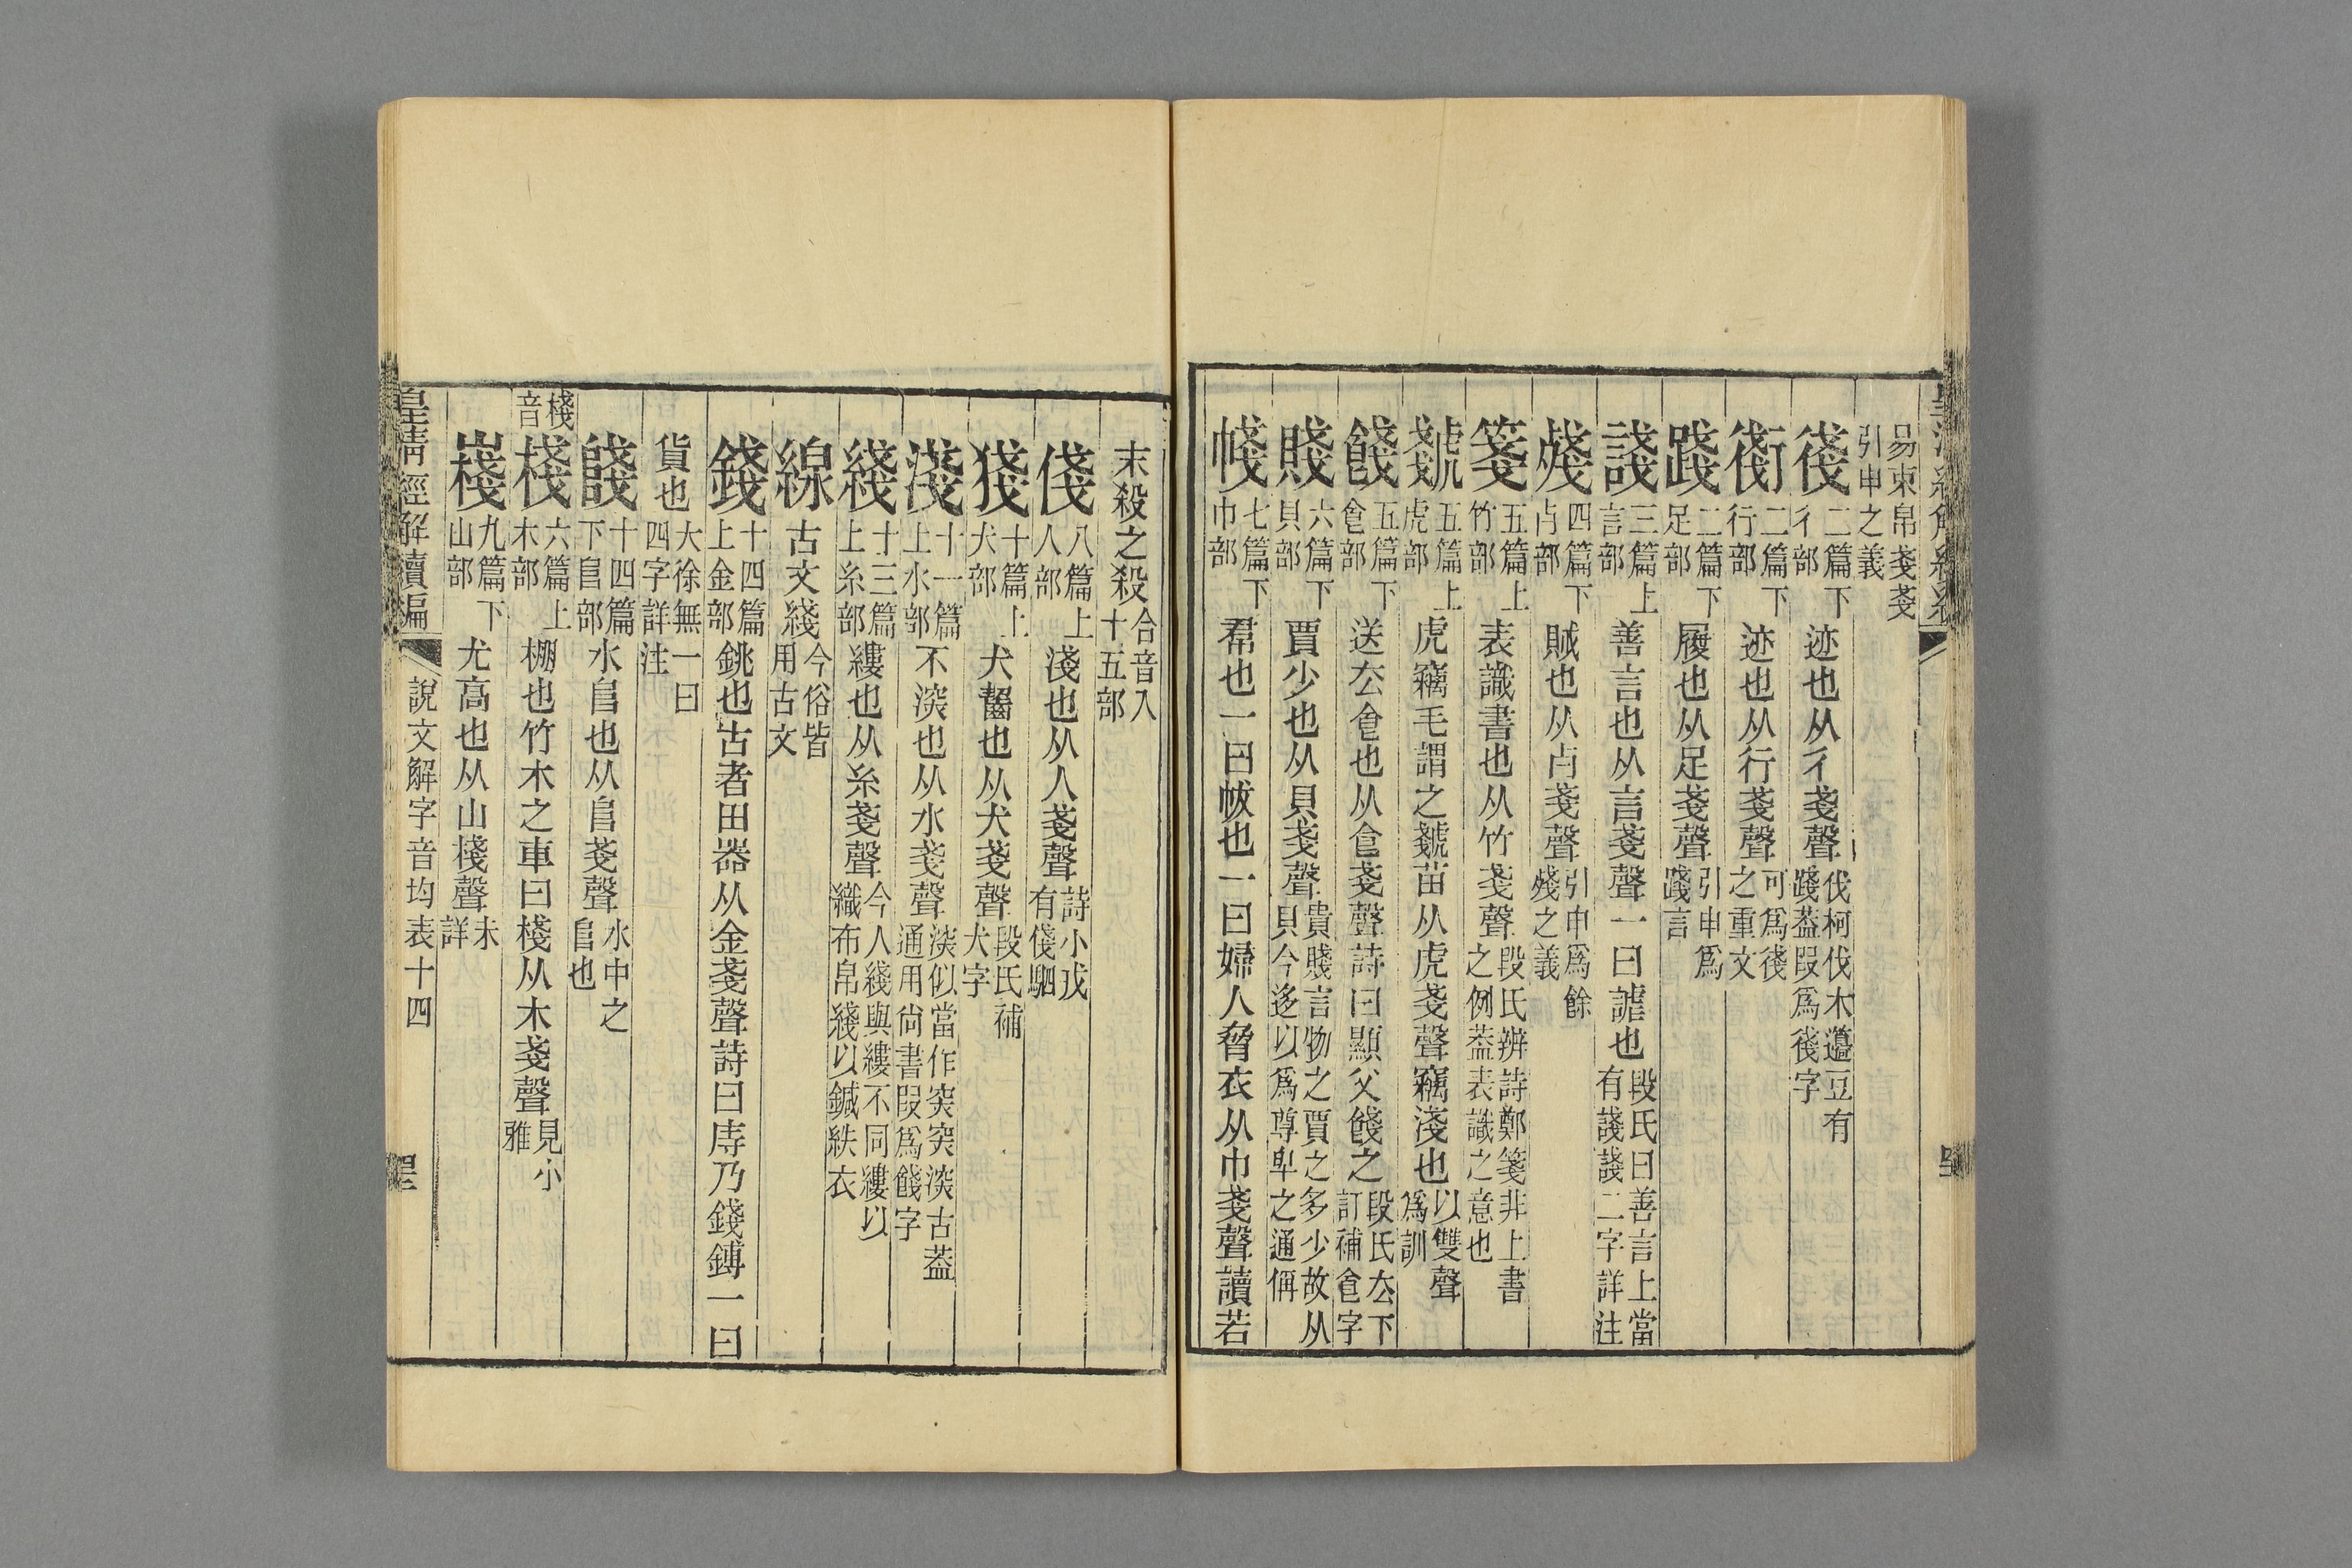 易束帛戔戔
引申之義
後二篇下彳部迹也从彳戔聲伐柯伐木籩豆有踐葢叚爲後字
衘二篇下行部迹也从行戔聲可爲後之重文
踐二篇下足部履也从足戔聲引申爲踐言
諓三篇上言部善言也从言戔聲一曰謔也段氏曰善言上當有諓諓二字詳注
殘四篇下歺部賊也从歺戔聲引申爲餘殘之義
箋五篇上竹部表識書也从竹戔聲段氏辨詩鄭箋非上書之例葢表識之意也
虦五篇上虎部虎竊毛謂之虦苗从虎戔聲竊淺也以雙聲爲訓
餞五篇下倉部送厺食也从食戔聲詩曰顯父餞之段氏厺下訂補食字
賤六篇下貝部賈少也从貝戔聲貴賤言物之賈之多少故从貝今迻以爲尊卑之通偁
帴七篇下巾部帬也一曰帗也一曰婦人脅衣从巾戔聲讀若
末殺之殺合音入十五部
俴八篇上人部淺也从人戔聲詩小戎有俴駟
㹽十篇上犬部犬齧也从犬戔聲段氏補犬字
淺十一篇上水部不㴱也从水戔聲㴱似當作突突㴱古葢通用尙書叚爲餞字
綫十三篇上糸部縷也从糸戔聲今人綫與縷不同縷以織布帛綫以鍼紩衣
線古文綫今俗皆用古文
錢十四篇上金部銚也古者田器从金戔聲詩曰庤乃錢鎛一曰
貨也大徐無一曰四字詳注
䧖十四篇下𨸏部水𨸏也从𨸏戔聲水中之𨸏也
棧音
棧六篇上木部棚也竹木之車曰棧从木戔聲見小雅
嶘九篇下山部尤高也从山棧聲未詳
皇淸經解續編
說文解字音均表十四